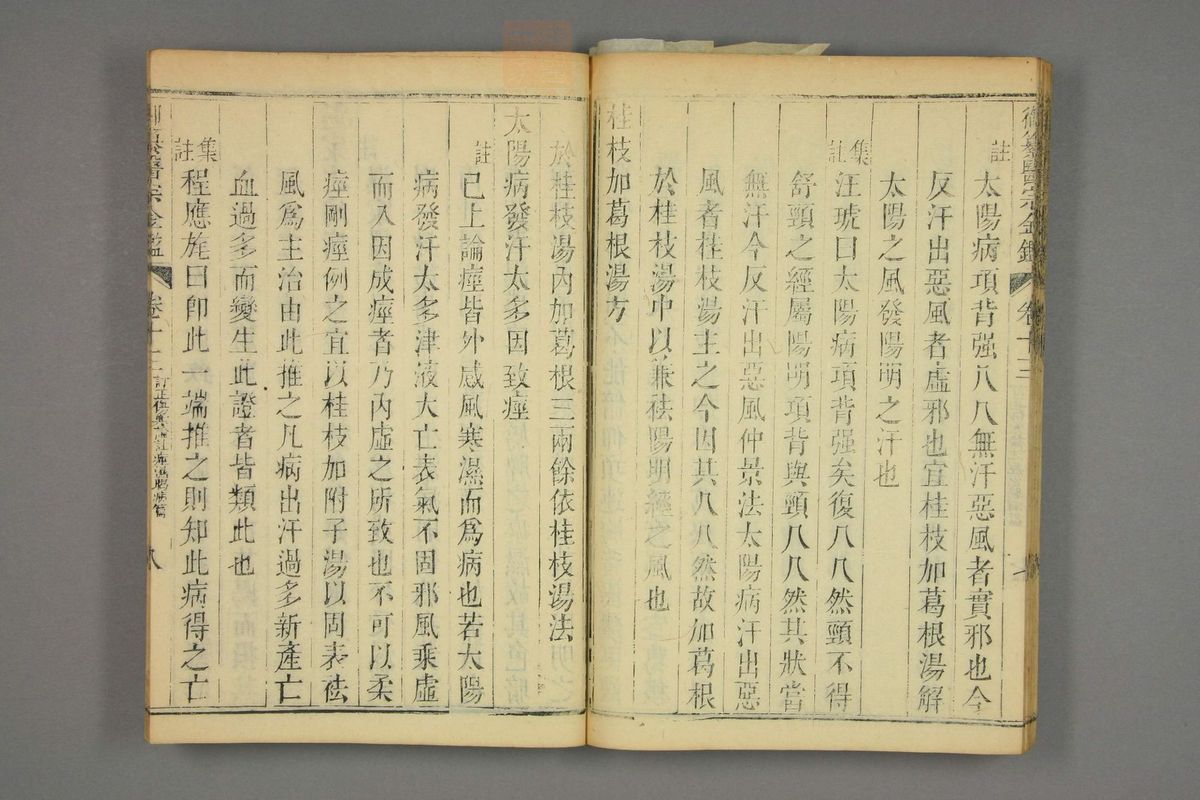 御纂醫宗金鑑 卷十三 七
註
太陽病項背强几几無汗惡風者實邪也今
反汗出惡風者虛邪也宜桂枝加葛根湯解
太陽之風發陽明之汗也
集註
汪琥曰太陽病項背强矣復几几然頸不得
舒頸之經屬陽明項背與頸几几然其狀當
無汗今反汗出惡風仲景法太陽病汗出惡
風者桂枝湯主之今因其几几然故加葛根
於桂枝湯中以兼祛陽明經之風也
桂枝加葛根湯方
於桂枝湯內加葛根三兩餘依桂枝湯法
太陽病發汗太多因致痙
註
已上論痙皆外感風寒濕而爲病也若太陽
病發汗太多津液大亡表氣不固邪風乘虛
而入因成痙者乃內虛之所致也不可以柔
痙剛痙例之宜以桂枝加附子湯以固表祛
風爲主治由此推之凡病出汗過多新產亡
血過多而變生此證者皆類此也
集註
程應旄曰卽此一端推之則知此病得之亡
醫宗金鑑 卷十三 八